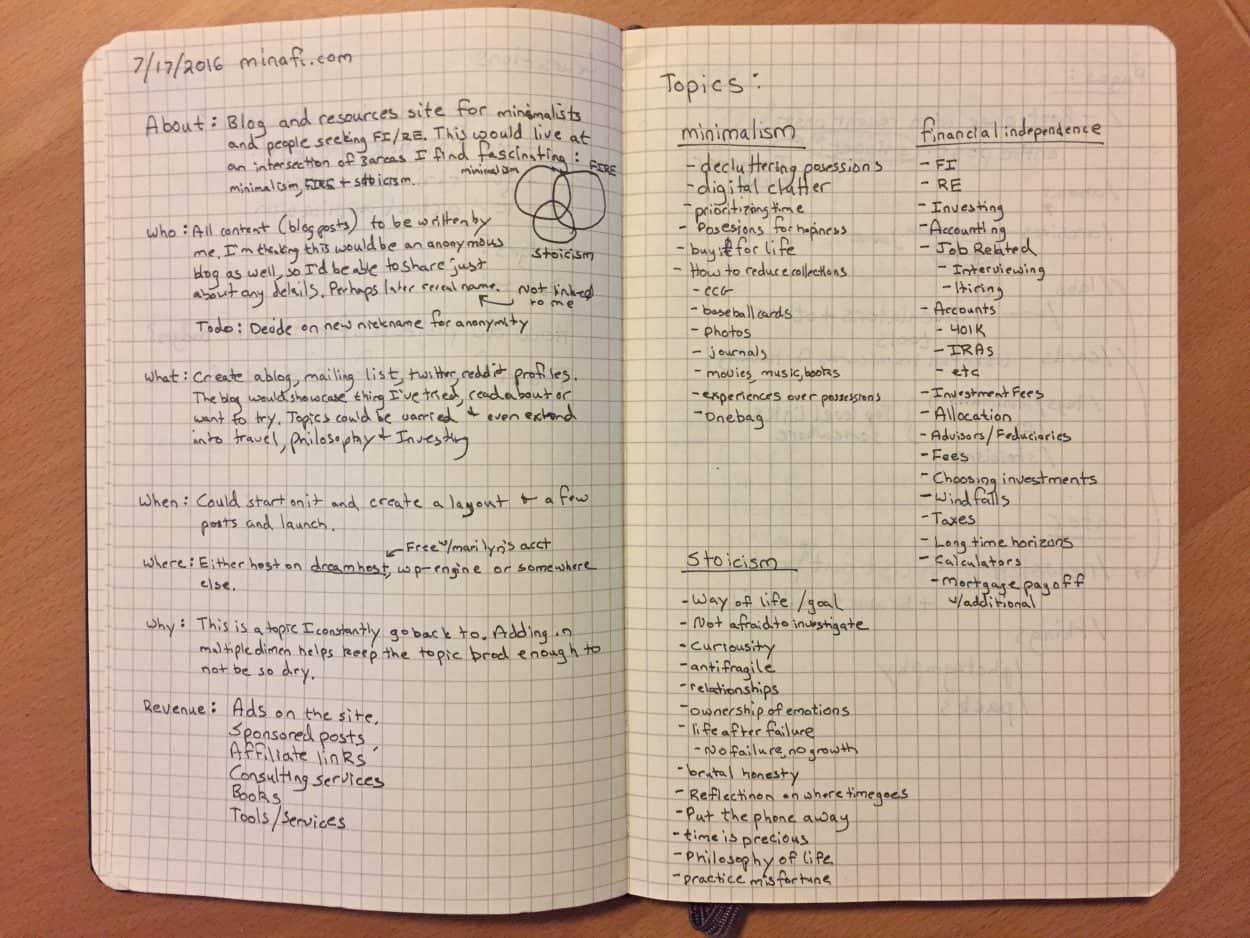 7/17/2016 minafi.com
About: Blog and resources site for minimalists
and people seeking FI/RE. This would live at
an intersection of 3 areas I find fascinating:
minimalism, FIRE + stoicism.
minimalism
FIRE
stoicism
Who: All content (blog posts) to be written by
me. I'm thinking this would be an anonymous
blog as well, so I'd be able to share just
about any details. Perhaps later reveal name.
Not linked
to me
Todo: Decide on new nickname for anonymity
What: Create a blog, mailing list, twitter, reddit profiles.
The blog would showcase thing I've tried, read about or
want to try. Topics could be varried + even extend
into travel, philosophy + Investing
When: Could start on it and create a layout + a few
posts and launch.
Free w/marilyn's acct
Where: Either host on dreamhost, wp-engine or somewhere
else.
Why: This is a topic I constantly go back to. Adding in
multiple dimen helps keep the topic brod enough to
not be so dry.
Revenue: Ads on the site.
Sponsored posts
Affiliate links
Consulting services
Books
Tools/services
Topics:
minimalism
- decluttering posessions
- digital clutter
- prioritizing time
- Posesions for hapiness
- buy it for life
- How to reduce collections
- CCG
- baseball cards
- photos
- journals
- movies, music, books
- experiences over possessions
- Onebag
financial independence
- FI
- RE
- Investing
- Accounting
- Job Related
- Interviewing
- Hiring
- Accounts
- 401K
- IRAs
- etc
- Investment Fees
- Allocation
- Advisors/Feduciaries
- Fees
- Choosing investments
- Windfalls
- Taxes
- Long time horizons
- Calculators
- Mortgage payoff
w/additional
Stoicism
- Way of life/goal
- Not afraid to investigate
- Curiousity
- antifragile
- relationships
- ownership of emotions
- life after failure
- No failure, no growth
- brutal honesty
- Reflectinon on where time goes
- Put the phone away
- time is precious
- Philosophy of life
- practice misfortune